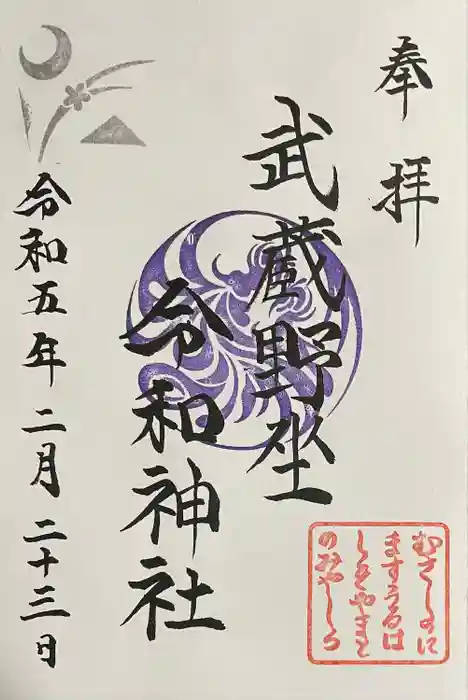 奉拝
武蔵野坐
令和神社
令和五年 二月 二十三日
むさしのに
ますうるは
しきやまと
のみやしろ